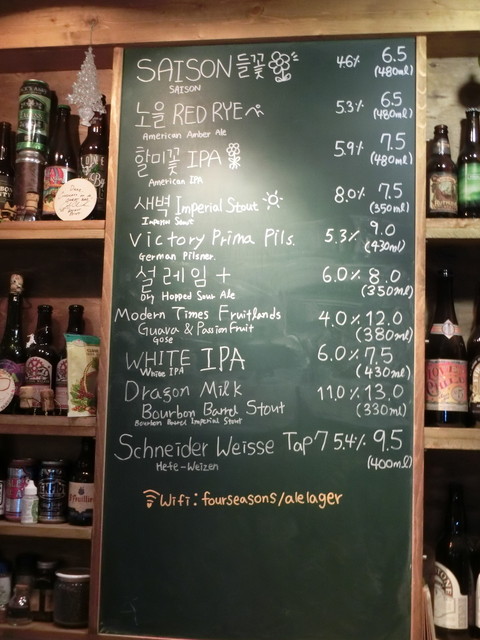 SAISON 들꽃 4.6% 6.5
SAISON (480ml)
노을 RED RYE 5.3% 6.5
American Amber Ale (480ml)
할미꽃 IPA 5.9% 7.5
American IPA (480ml)
새벽 Imperial Stout 8.0% 7.5
Imperial Stout (350ml)
Victory Prima Pils. 5.3% 9.0
German Pilsner. (430ml)
설레임 + 6.0% 8.0
Dry Hopped Sour Ale (350ml)
Modern Times Fruitlands 4.0% 12.0
Guava & Passion Fruit (380ml)
Gose
WHITE IPA 6.0% 7.5
White IPA (430ml)
Dragon Milk 11.0% 13.0
Bourbon Barrel Stout (330ml)
Bourbon Barrel Imperial Stout
Schneider Weisse Tap7 5.4% 9.5
Hefe-Weizen (400ml)
Wifi: fourseasons/alelager